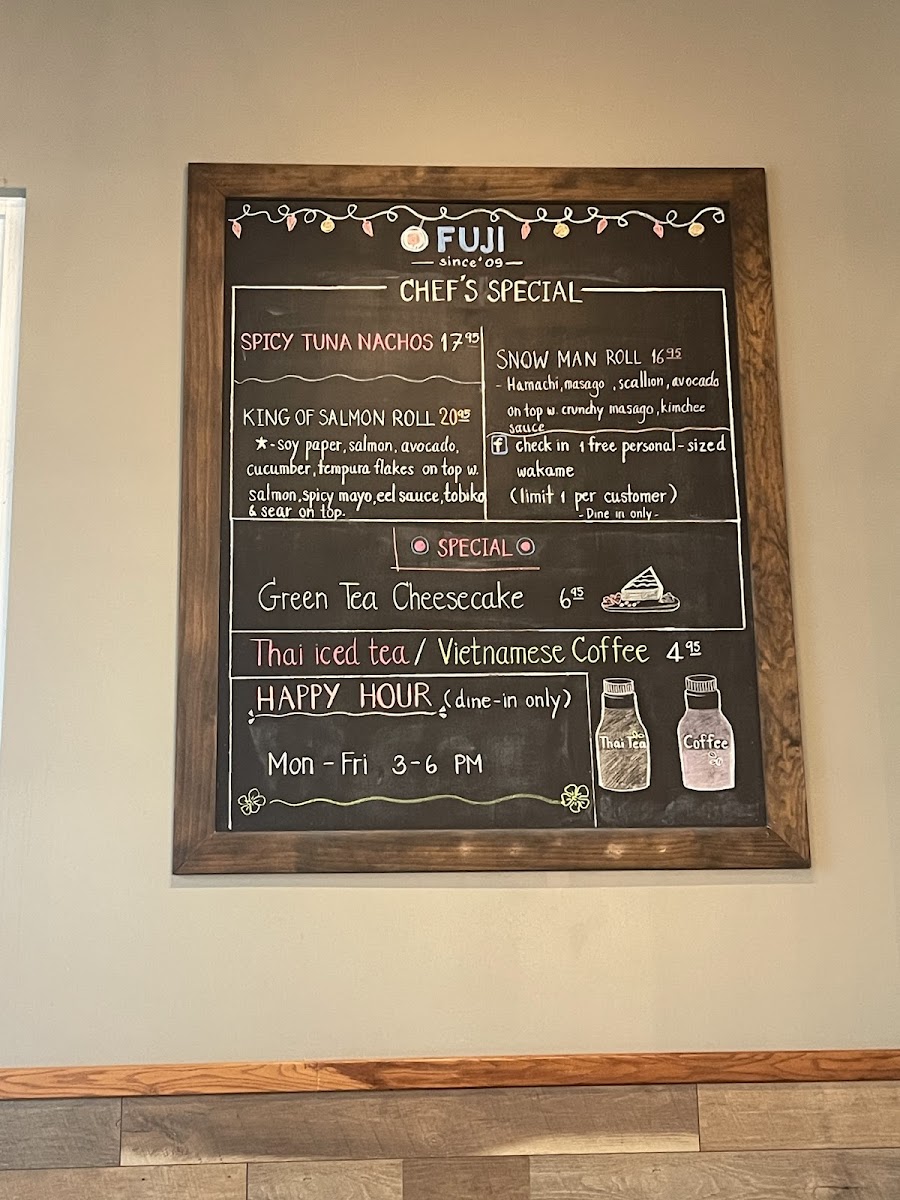 FUJI
since '09
CHEF'S SPECIAL
SPICY TUNA NACHOS 17.95
KING OF SALMON ROLL 20.95
★-soy paper, salmon, avocado,
cucumber, tempura flakes on top w.
salmon, spicy mayo, eel sauce, tobiko
& sear on top.
SNOW MAN ROLL 16.95
- Hamachi, masago, scallion, avocado
on top w. crunchy masago, kimchee
sauce
f check in 1 free personal-sized
wakame
(limit 1 per customer)
- Dine in only -
SPECIAL
Green Tea Cheesecake 6.95
Thai iced tea / Vietnamese Coffee 4.95
HAPPY HOUR (dine-in only)
Mon - Fri 3-6 PM
Thai Tea
Coffee